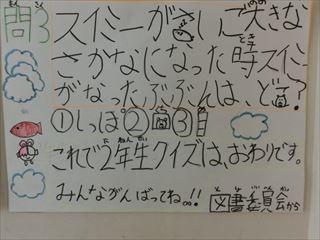 問3 スイミーがさいごに大きな
さかなになった時スイミー
がなったぶぶんは、ど?
①しっぽ②③目
これで2年生クイズは、おわりです。
みんながんばってね。!!
図書委員会から